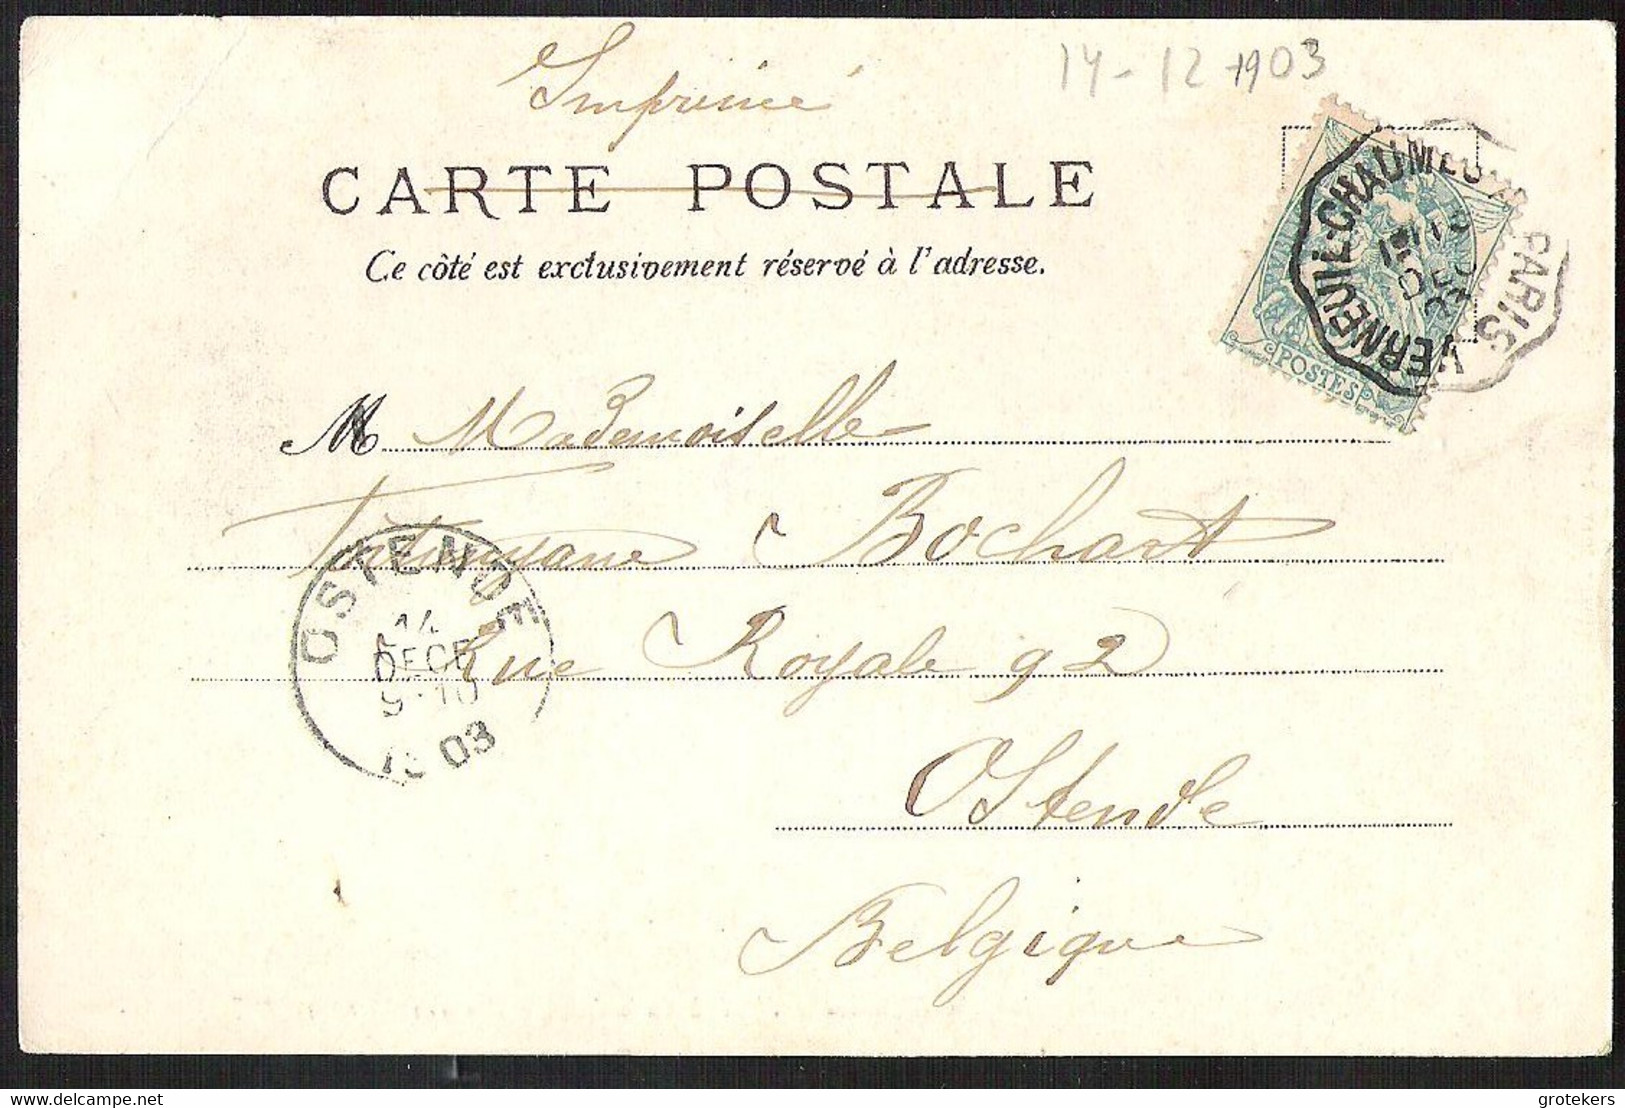 14-12-1903
Imprimé
CARTE POSTALE
Ce côté est exclusivement réservé à l'adresse.
VERNEUIL-CHAUMES
PARIS
POSTES
M Mademoiselle
Bochart
Rue Royale 92
Ostende
Belgique
OSTENDE
14
DECE
9-10
03
delcampe.net
grotekers